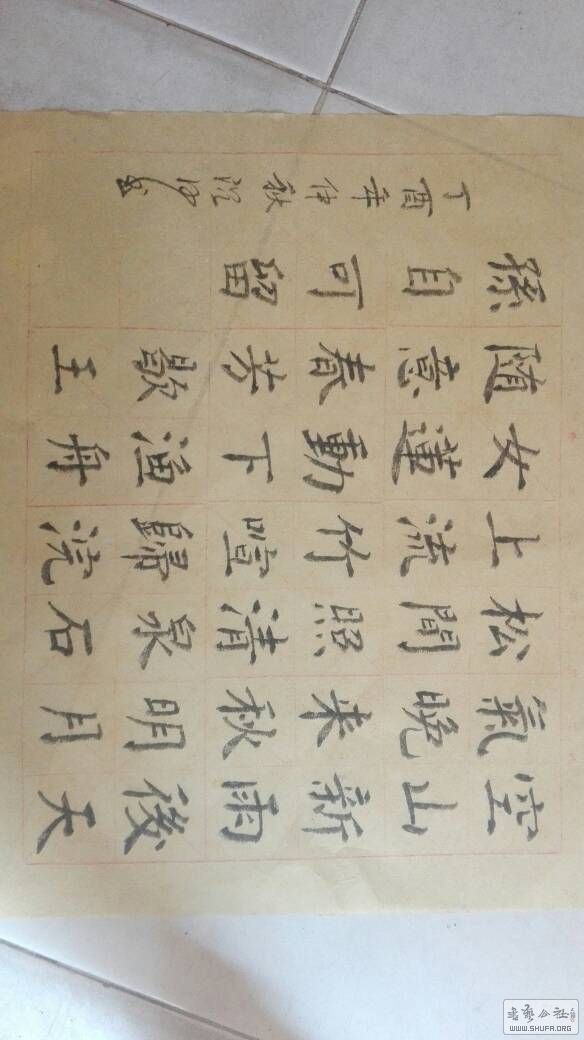 空山新雨後天
氣晚来秋明月
松間照清泉石
上流竹喧歸浣
女蓮動下漁舟
随意春芳歇王
孫自可留
丁酉年仲秋
書藝公社
WWW.SHUFA.ORG